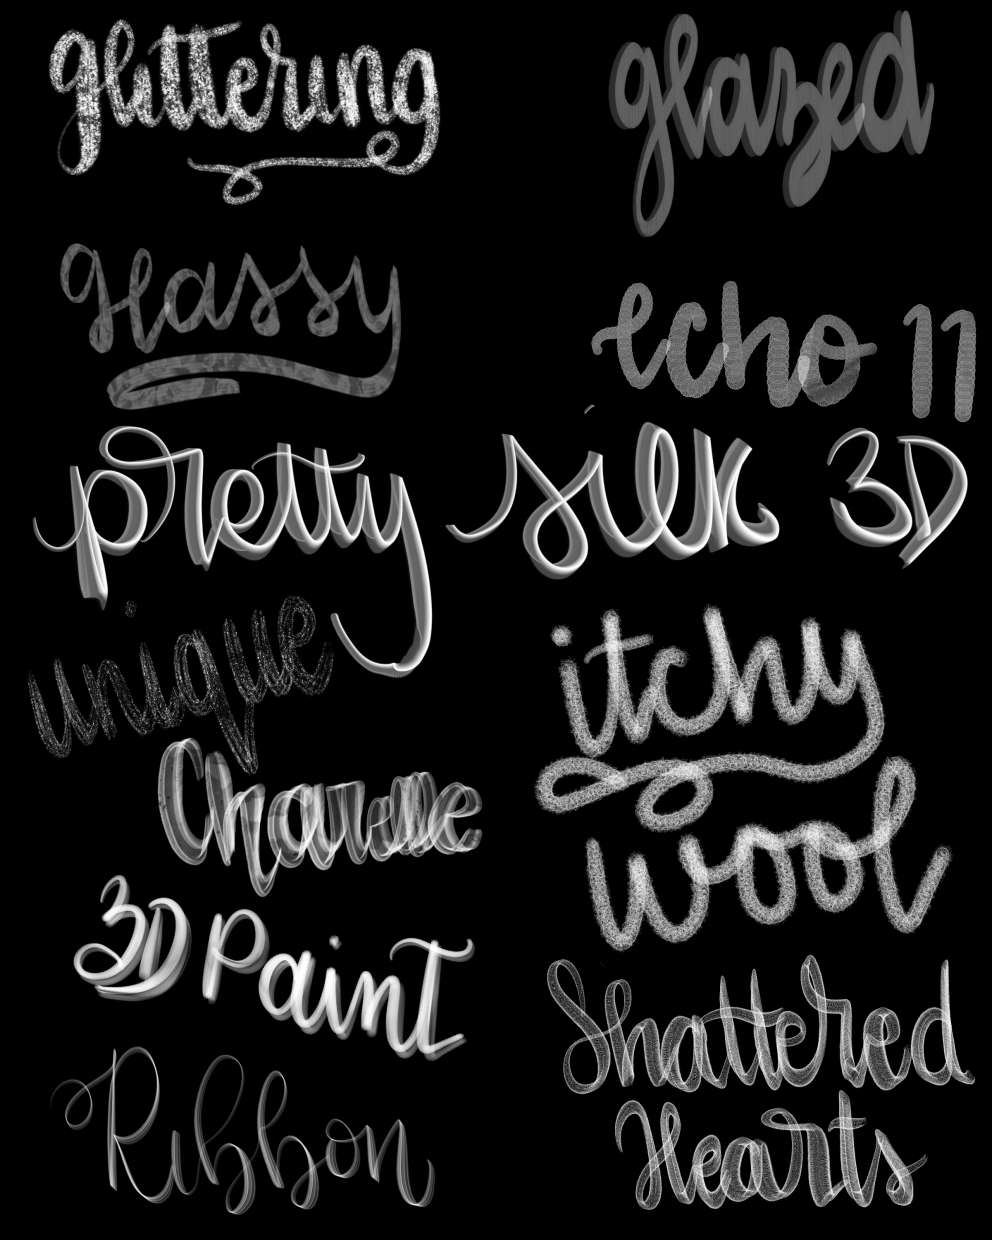 glittering
glazed
glassy
echo 11
pretty silk 3D
unique
itchy
wool
3D Paint
Shattered
Hearts
Ribbon